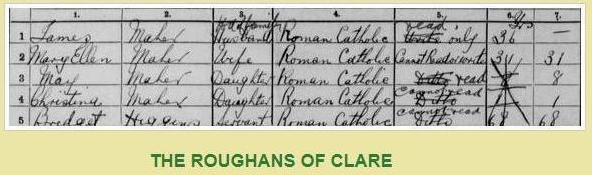 1. 2. 3. 4. 5. 6. 7.
1 James Maher Head of Family Husband Roman Catholic read Write only 36 —
2 Mary Ellen Maher Wife Roman Catholic Cannot Read or write 31 31
3 May Maher Daughter Roman Catholic Ditto read 8 8
4 Christina Maher Daughter Roman Catholic cannot read Ditto 1 1
5 Bridget Higgins Servant Roman Catholic cannot read Ditto 68 68
THE ROUGHANS OF CLARE